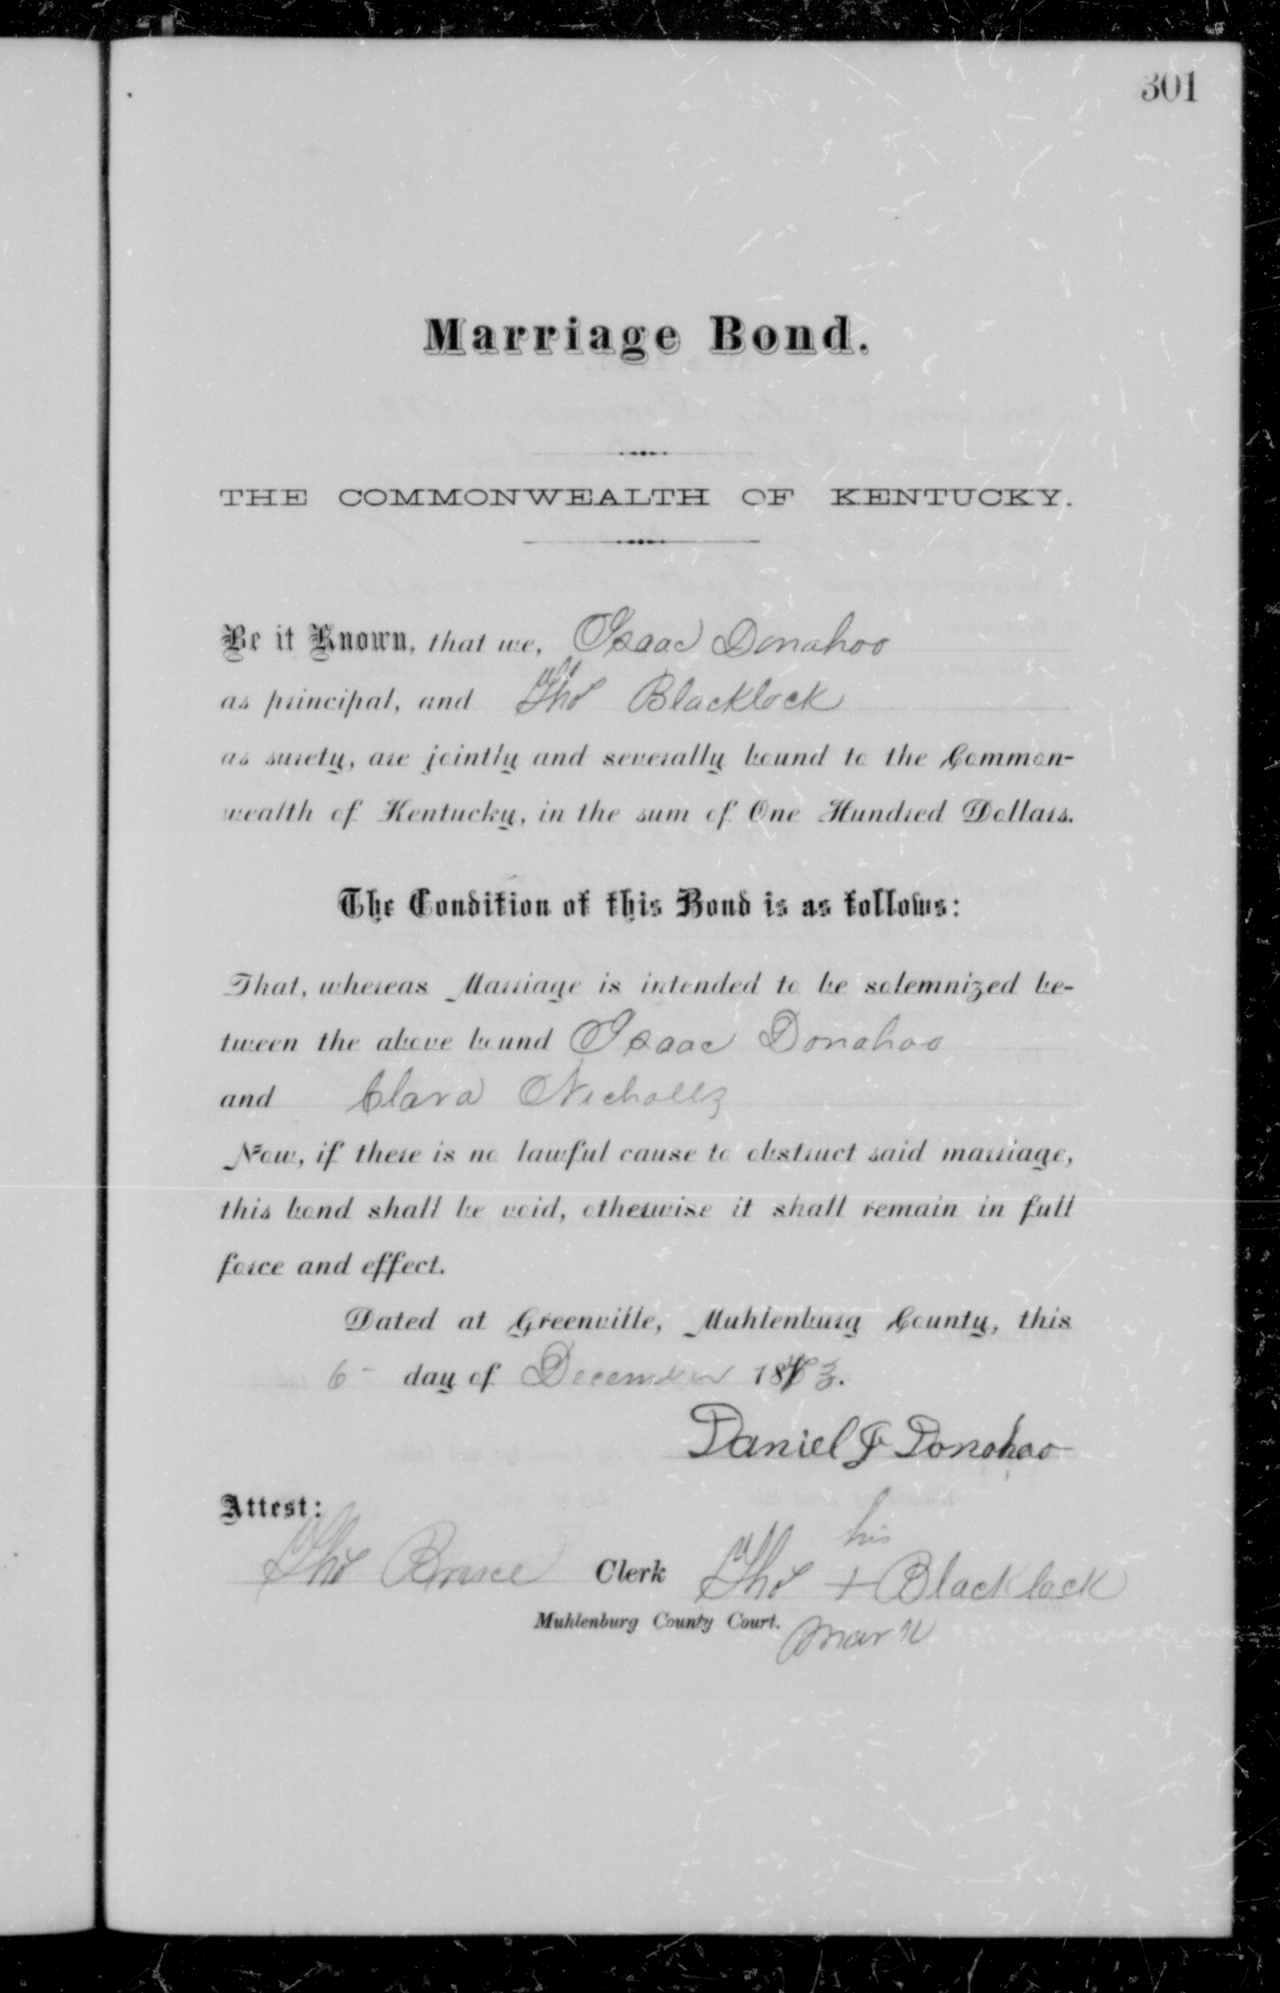 301
Marriage Bond.
THE COMMONWEALTH OF KENTUCKY.
Be it Known, that we, Isaac Donahoo
as principal, and Tho^s Blacklock
as surety, are jointly and severally bound to the Common-
wealth of Kentucky, in the sum of One Hundred Dollars.
The Condition of this Bond is as follows:
That, whereas Marriage is intended to be solemnized be-
tween the above bound Isaac Donahoo
and Clara Nicholls
Now, if there is no lawful cause to obstruct said marriage,
this bond shall be void, otherwise it shall remain in full
force and effect.
Dated at Greenville, Muhlenburg County, this
6 day of December 18
Daniel J Donohoo
Attest:
his
Tho^s Bruce Clerk Tho^s + Blacklock
Muhlenburg County Court. mark